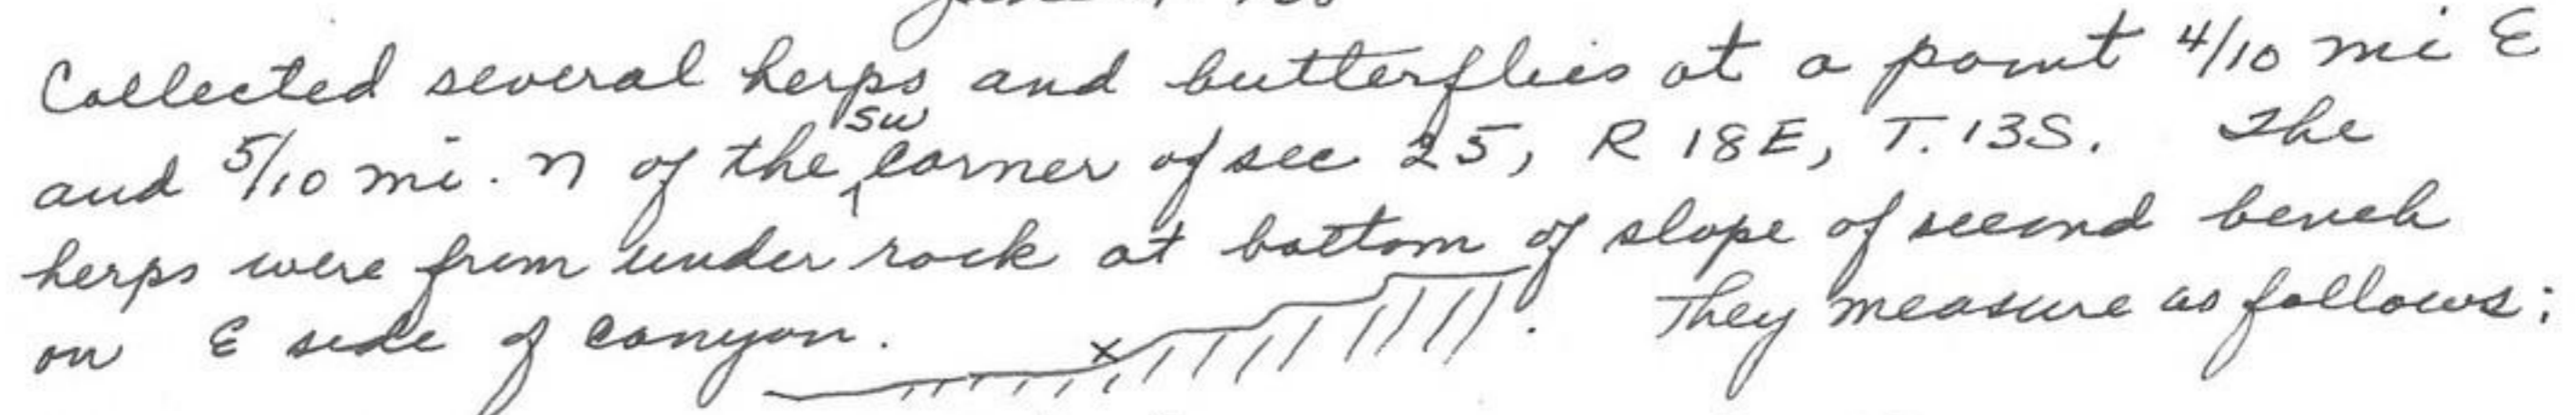 Collected several herps and butterflies at a point 4/10 mi E
and 5/10 mi. N of the SW corner of sec 25, R 18E, T. 13S. The
herps were from under rock at bottom of slope of second bench
on E side of canyon. They measure as follows: